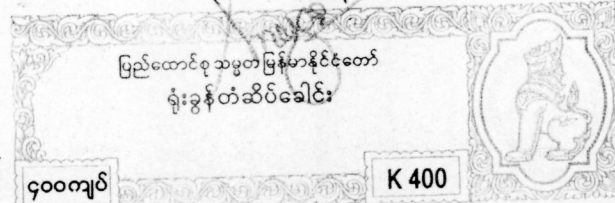 ပြည်ထောင်စုသမ္မတမြန်မာနိုင်ငံတော်
ရုံးခွန်တံဆိပ်ခေါင်း
၄၀၀ကျပ်
K 400